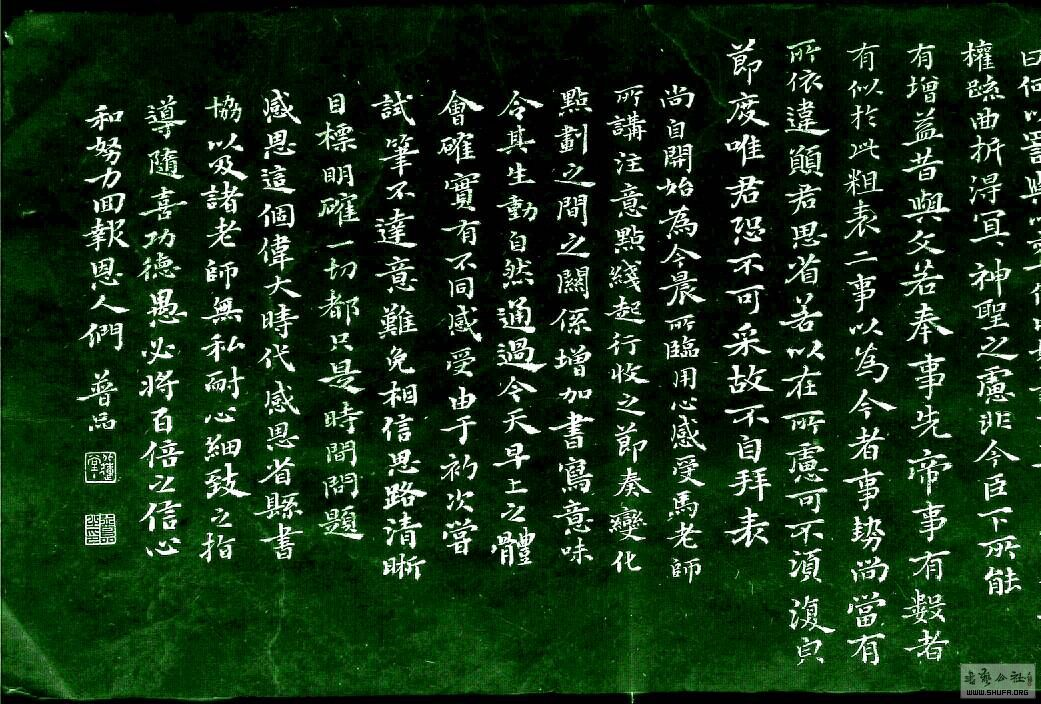 曰何以
權疏曲折得宜神聖之慮非今臣下所能
有增益昔與文若奉事先帝事有數者
有似於此粗表二事以為今者事勢尚當有
所依違願君思省若以在所慮可不須復貢
節度唯君恐不可采故不自拜表
尚自開始為今晨所臨用心感受馬老師
所講注意點綫起行收之節奏變化
點劃之間之關係增加書寫意味
令其生動自然通過今天早上之體
會確實有不同感受由于初次嘗
試筆不達意難免相信思路清晰
目標明確一切都只是時間問題
感恩這個偉大時代感恩省縣書
協以及諸老師無私耐心細致之指
導隨喜功德愚必将百倍之信心
和努力回報恩人們 普
WWW.SHUFA.ORG